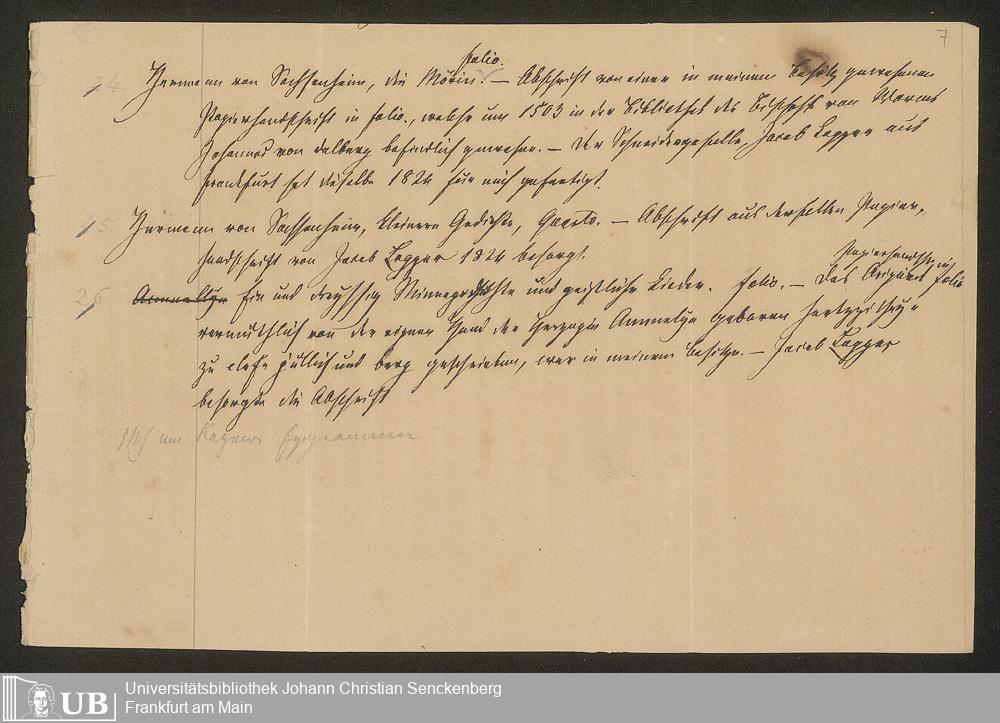 7
folio.
24. Hermann von Sachsenheim, die Mörin. — Abschrift von einer in meinem Besitz gewesenen
Papierhandschrift in folio., welche um 1503 in der Bibliothek des Bischofs von Worms
Johannes von Dalberg befindlich gewesen. — Der Schneidergeselle, Jacob Kogger aus
Frankfurt hat dieselbe 1824 für mich gefertigt.
15. Hermann von Sachsenheim, kleinere Gedichte, Quarto. — Abschrift aus derselben Papier-
handschrift von Jacob Kogger 1824 besorgt.
Papierhandschrift
26 Ammelye Ein und dreyssig Minnegedichte und geistliche Lieder. folio. — Das Original folio
vermuthlich von der eignen Hand der Herzogin Ammelye geboren hertzzithey-
zu clefe jullich und berg geschrieben, war in meinem Besitze. — Jacob Kogger
besorgte die Abschrift
von